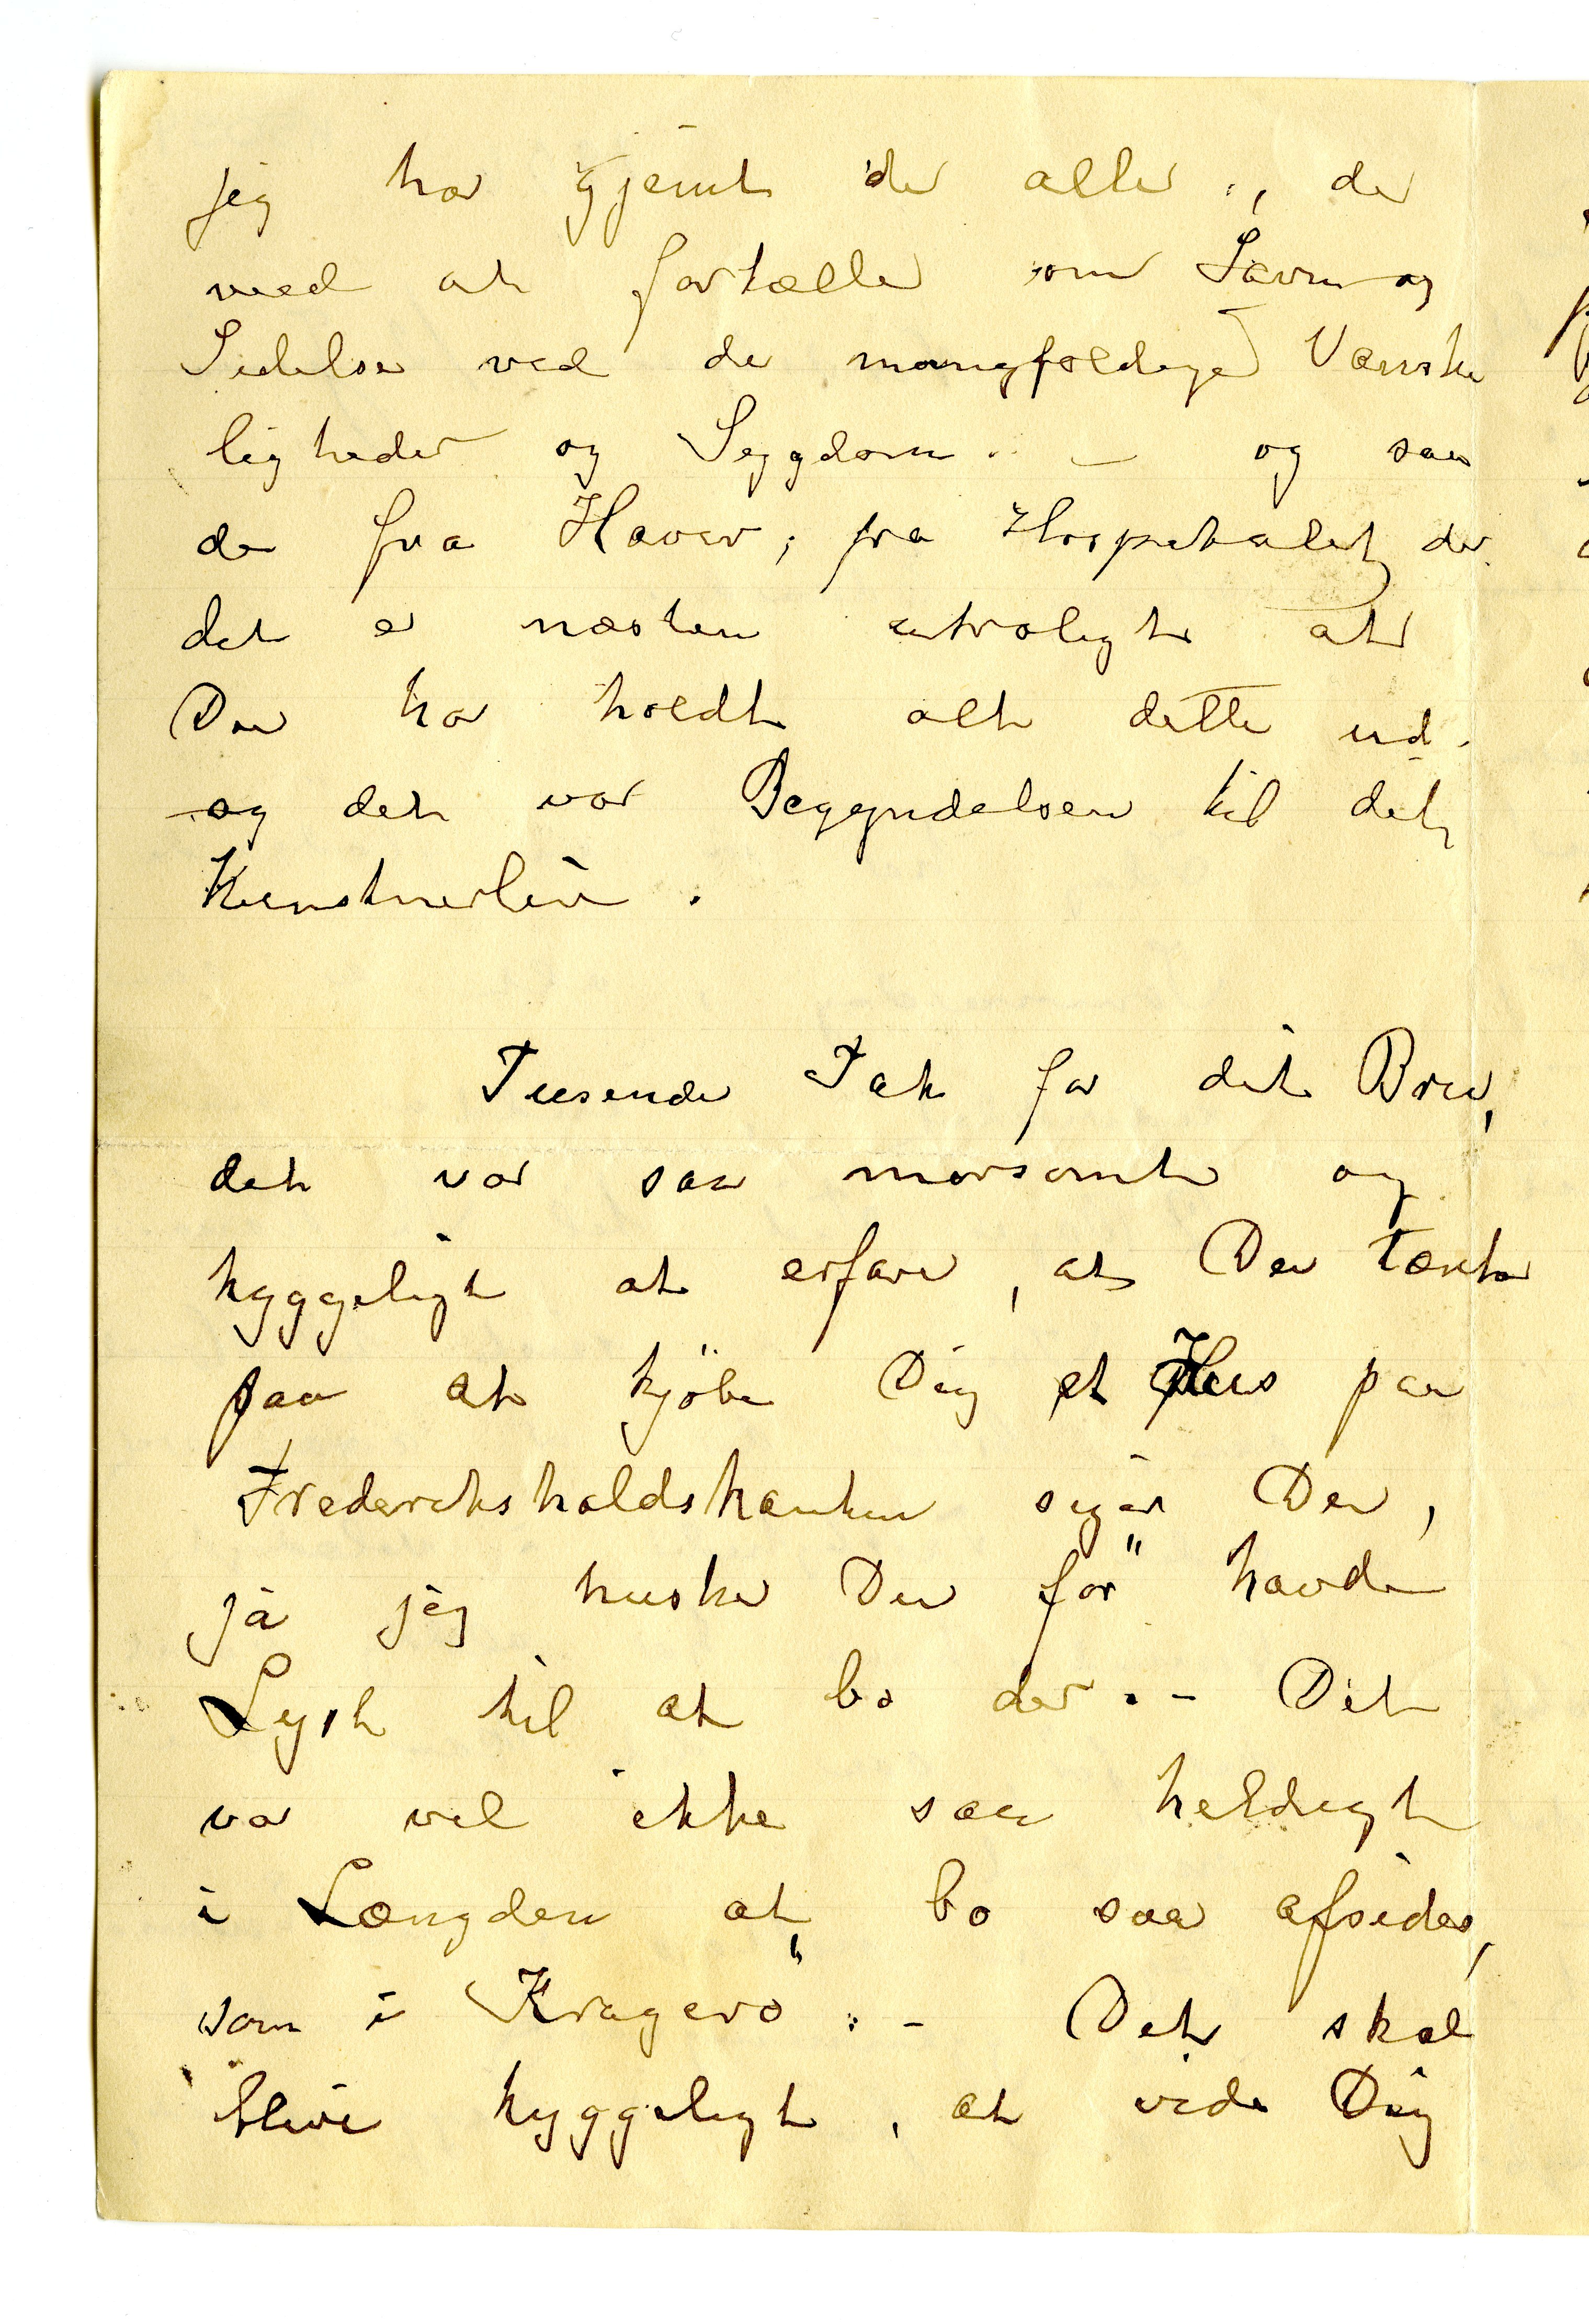 jeg har gjemt de alle, de
ved at fortælle om Savn og
Lidelse ved de mangfoldige Vanske
ligheder og Sygdom. – og saa
de fra Haver, fra Hospitalet der
det er næsten utroligt at
Du har holdt alt dette ud.
og det var Begyndelsen til dit
Kunstnerliv.
Tusende Tak for dit Brev,
det var saa morsomt og
hyggeligt at erfare, at Du tænker
paa at kjöbe Dig et Hus paa
Frederikshaldskanten siger Du,
ja jeg husker Du för havde
Lyst til at bo der. – Det
var vel ikke saa heldigt
i Længden at bo saa afsides,
som i Kragerö. – Det skal
blive hyggeligt, at vide Dig